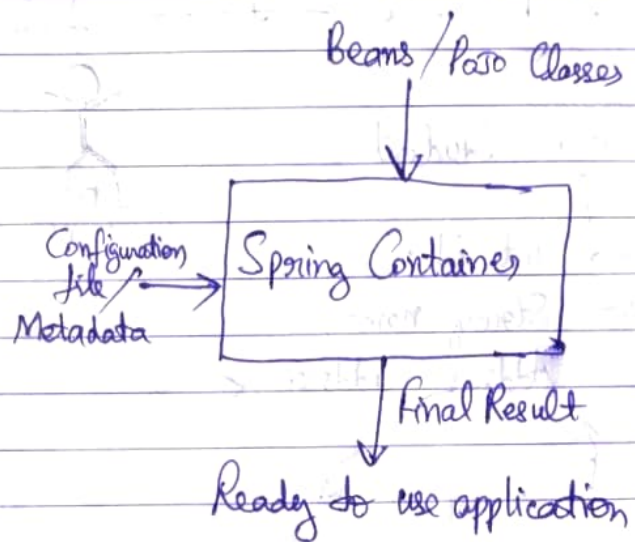 Beans / POJO Classes
Configuration
file /
Metadata
Spring Container
Final Result
Ready to use application